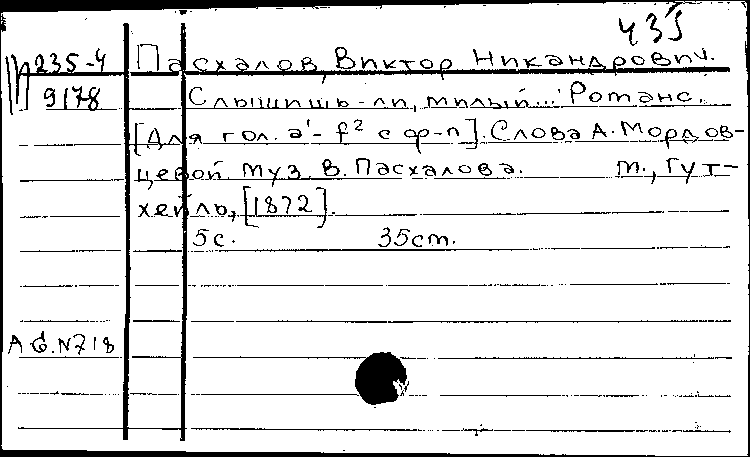 435
235-4 Пасхалов, Виктор Никандрович.
9178 Слышишь-ли, милый...: Романс.
[Для гол. a¹-f² с ф-п]. Слова А. Мордов-
цевой муз В. Пасхалова. М., Гут-
хейль, [1872].
5с. 35см.
№718